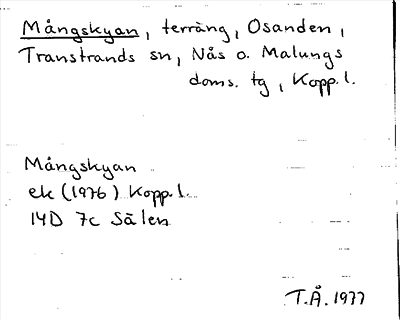 Mångskyan, terräng, Osanden,
Transtrands sn, Nås o. Malungs
doms. tg, Kopp.l.
Mångskyan
ek (1976) Kopp.l.
14D 7c Sälen
T.Å. 1977